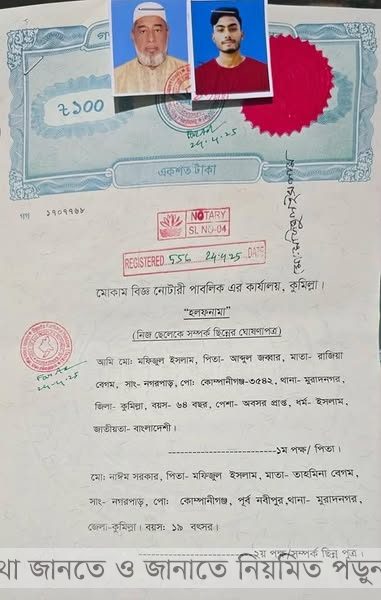 ৳১০০
24.4.25
একশত টাকা
গগ ১৭০৭৭৬৮
মো: মফিজুল ইসলাম
NOTARY
SL NO-04
REGISTERED 556 24.4.25 DATE
মোকাম বিজ্ঞ নোটারী পাবলিক এর কার্যালয়, কুমিল্লা।
"হলফনামা"
(নিজ ছেলেকে সম্পর্ক ছিন্নের ঘোষণাপত্র)
24.4.25
আমি মো: মফিজুল ইসলাম, পিতা- আব্দুল জব্বার, মাতা- রাজিয়া
বেগম, সাং- নগরপাড়, পো: কোম্পানীগঞ্জ-৩৫৪২, থানা- মুরাদনগর,
জিলা- কুমিল্লা, বয়স- ৬৪ বছর, পেশা- অবসর প্রাপ্ত, ধর্ম- ইসলাম,
জাতীয়তা- বাংলাদেশী।
---------------------------১ম পক্ষ/ পিতা।
মো: নাঈম সরকার, পিতা- মফিজুল ইসলাম, মাতা- তাহমিনা বেগম,
সাং- নগরপাড়, পো: কোম্পানীগঞ্জ, পূর্ব নবীপুর,থানা- মুরাদনগর,
জেলা-কুমিল্লা। বয়স: ১৯ বৎসর।
---------------------------২য় পক্ষ/সম্পর্ক ছিন্ন পুত্র।
জানতে ও জানাতে নিয়মিত পড়ুন